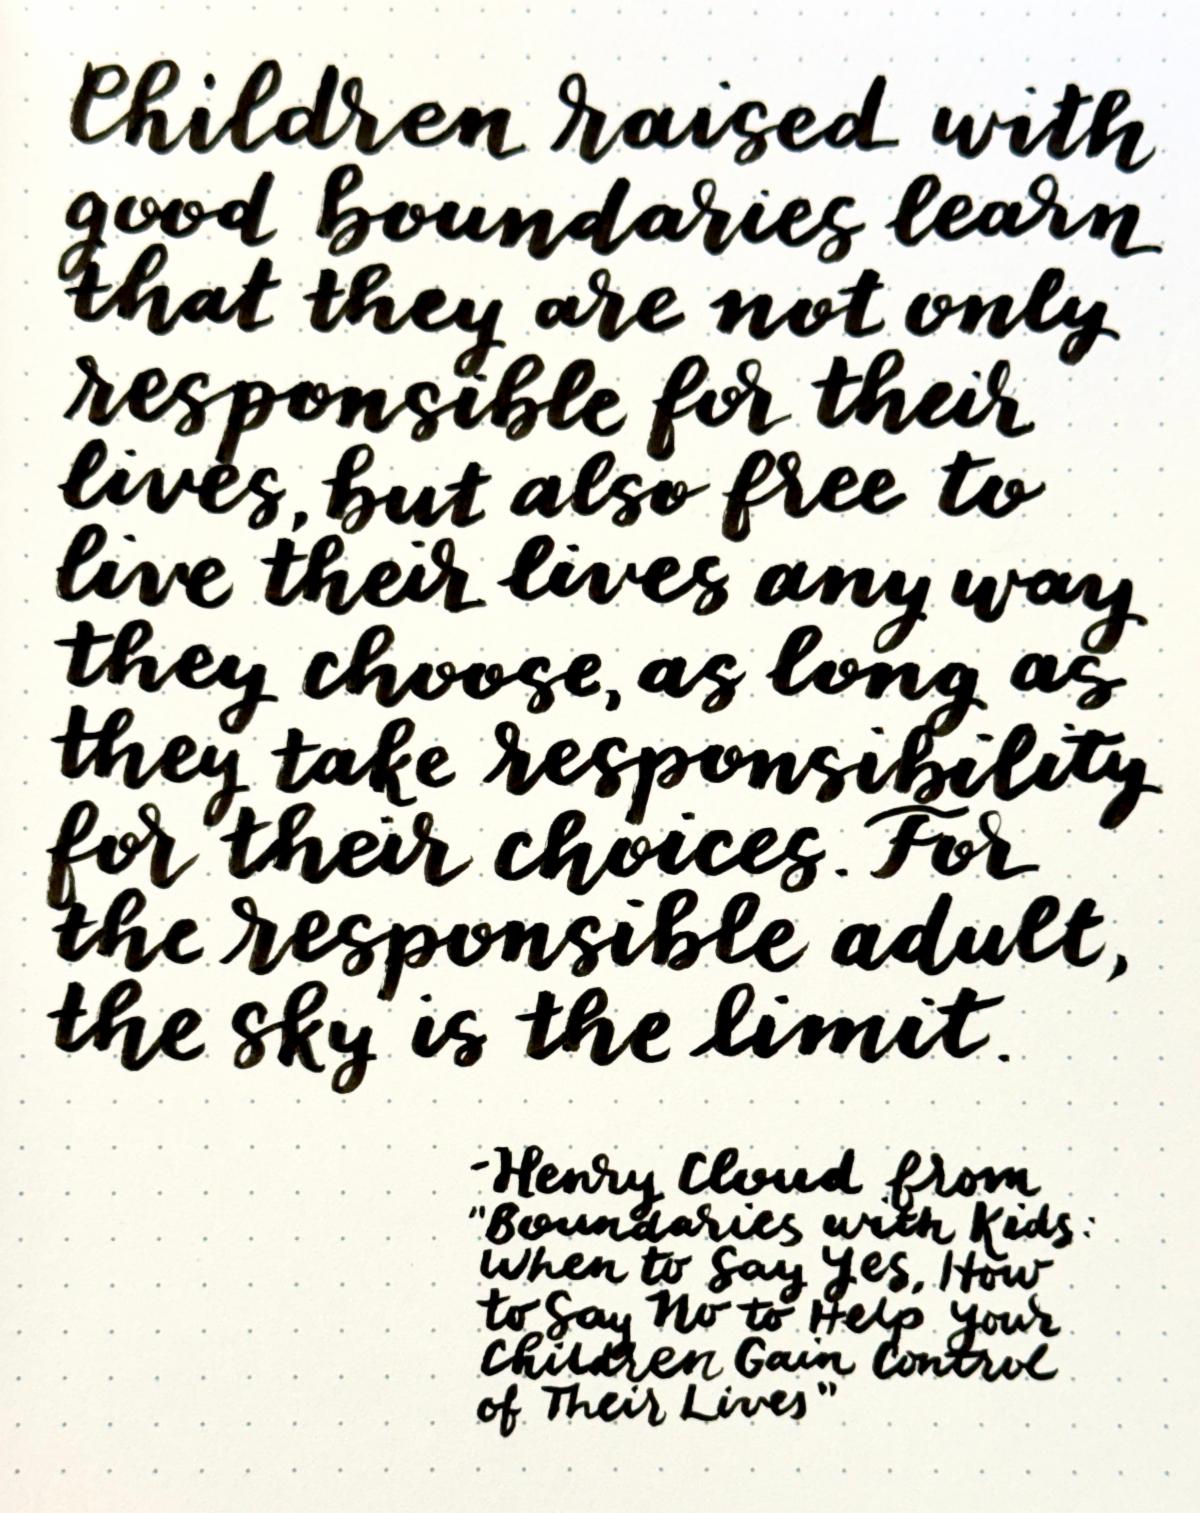 Children raised with
good boundaries learn
that they are not only
responsible for their
lives, but also free to
live their lives any way
they choose, as long as
they take responsibility
for their choices. For
the responsible adult,
the sky is the limit.
-Henry Cloud from
"Boundaries with Kids:
When to Say Yes, How
to Say No to Help Your
Children Gain Control
of Their Lives"